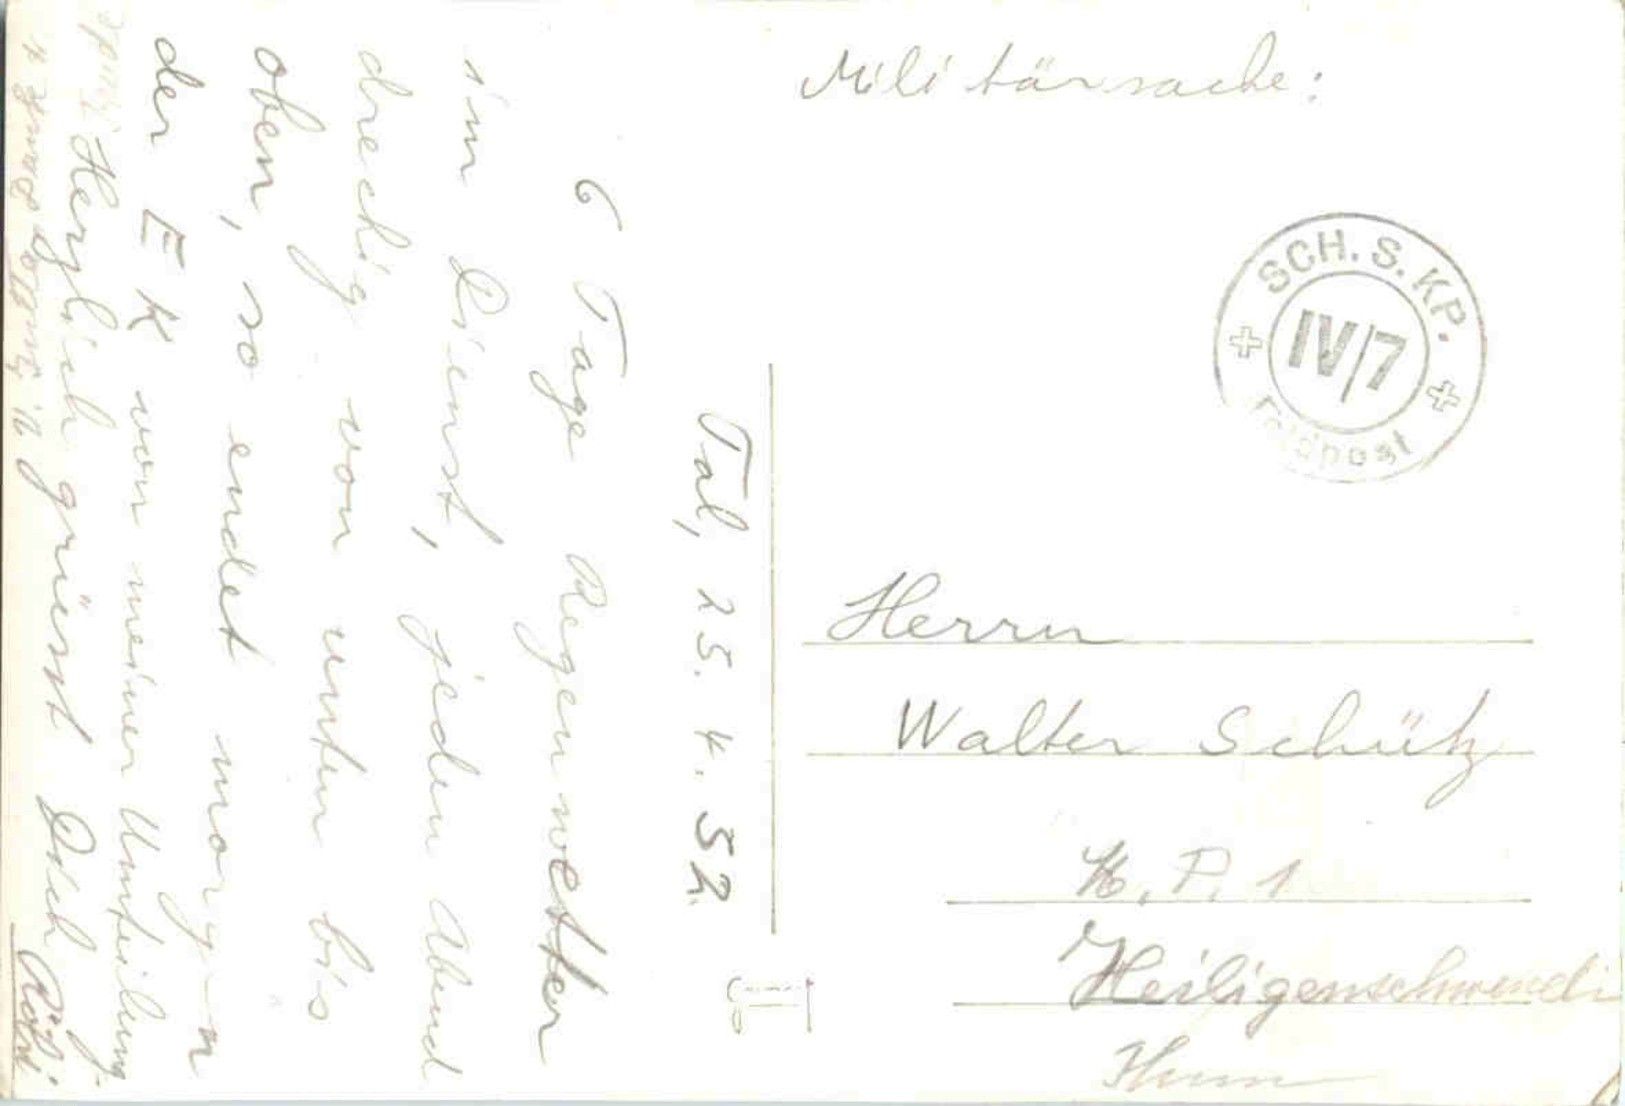 Militärsache:
SCH. S. KP.
IV/7
Feldpost
Herrn
Walter Schütz
K. P. 1
Heiligenschwendi
Tal, 25. 4. 52.
6 Tage Regenwetter
im Dienst, jeden Abend
dreckig von unten bis
oben, so endet morgen
der EK von meiner Umteilung.
Herzlich grüsst Dich